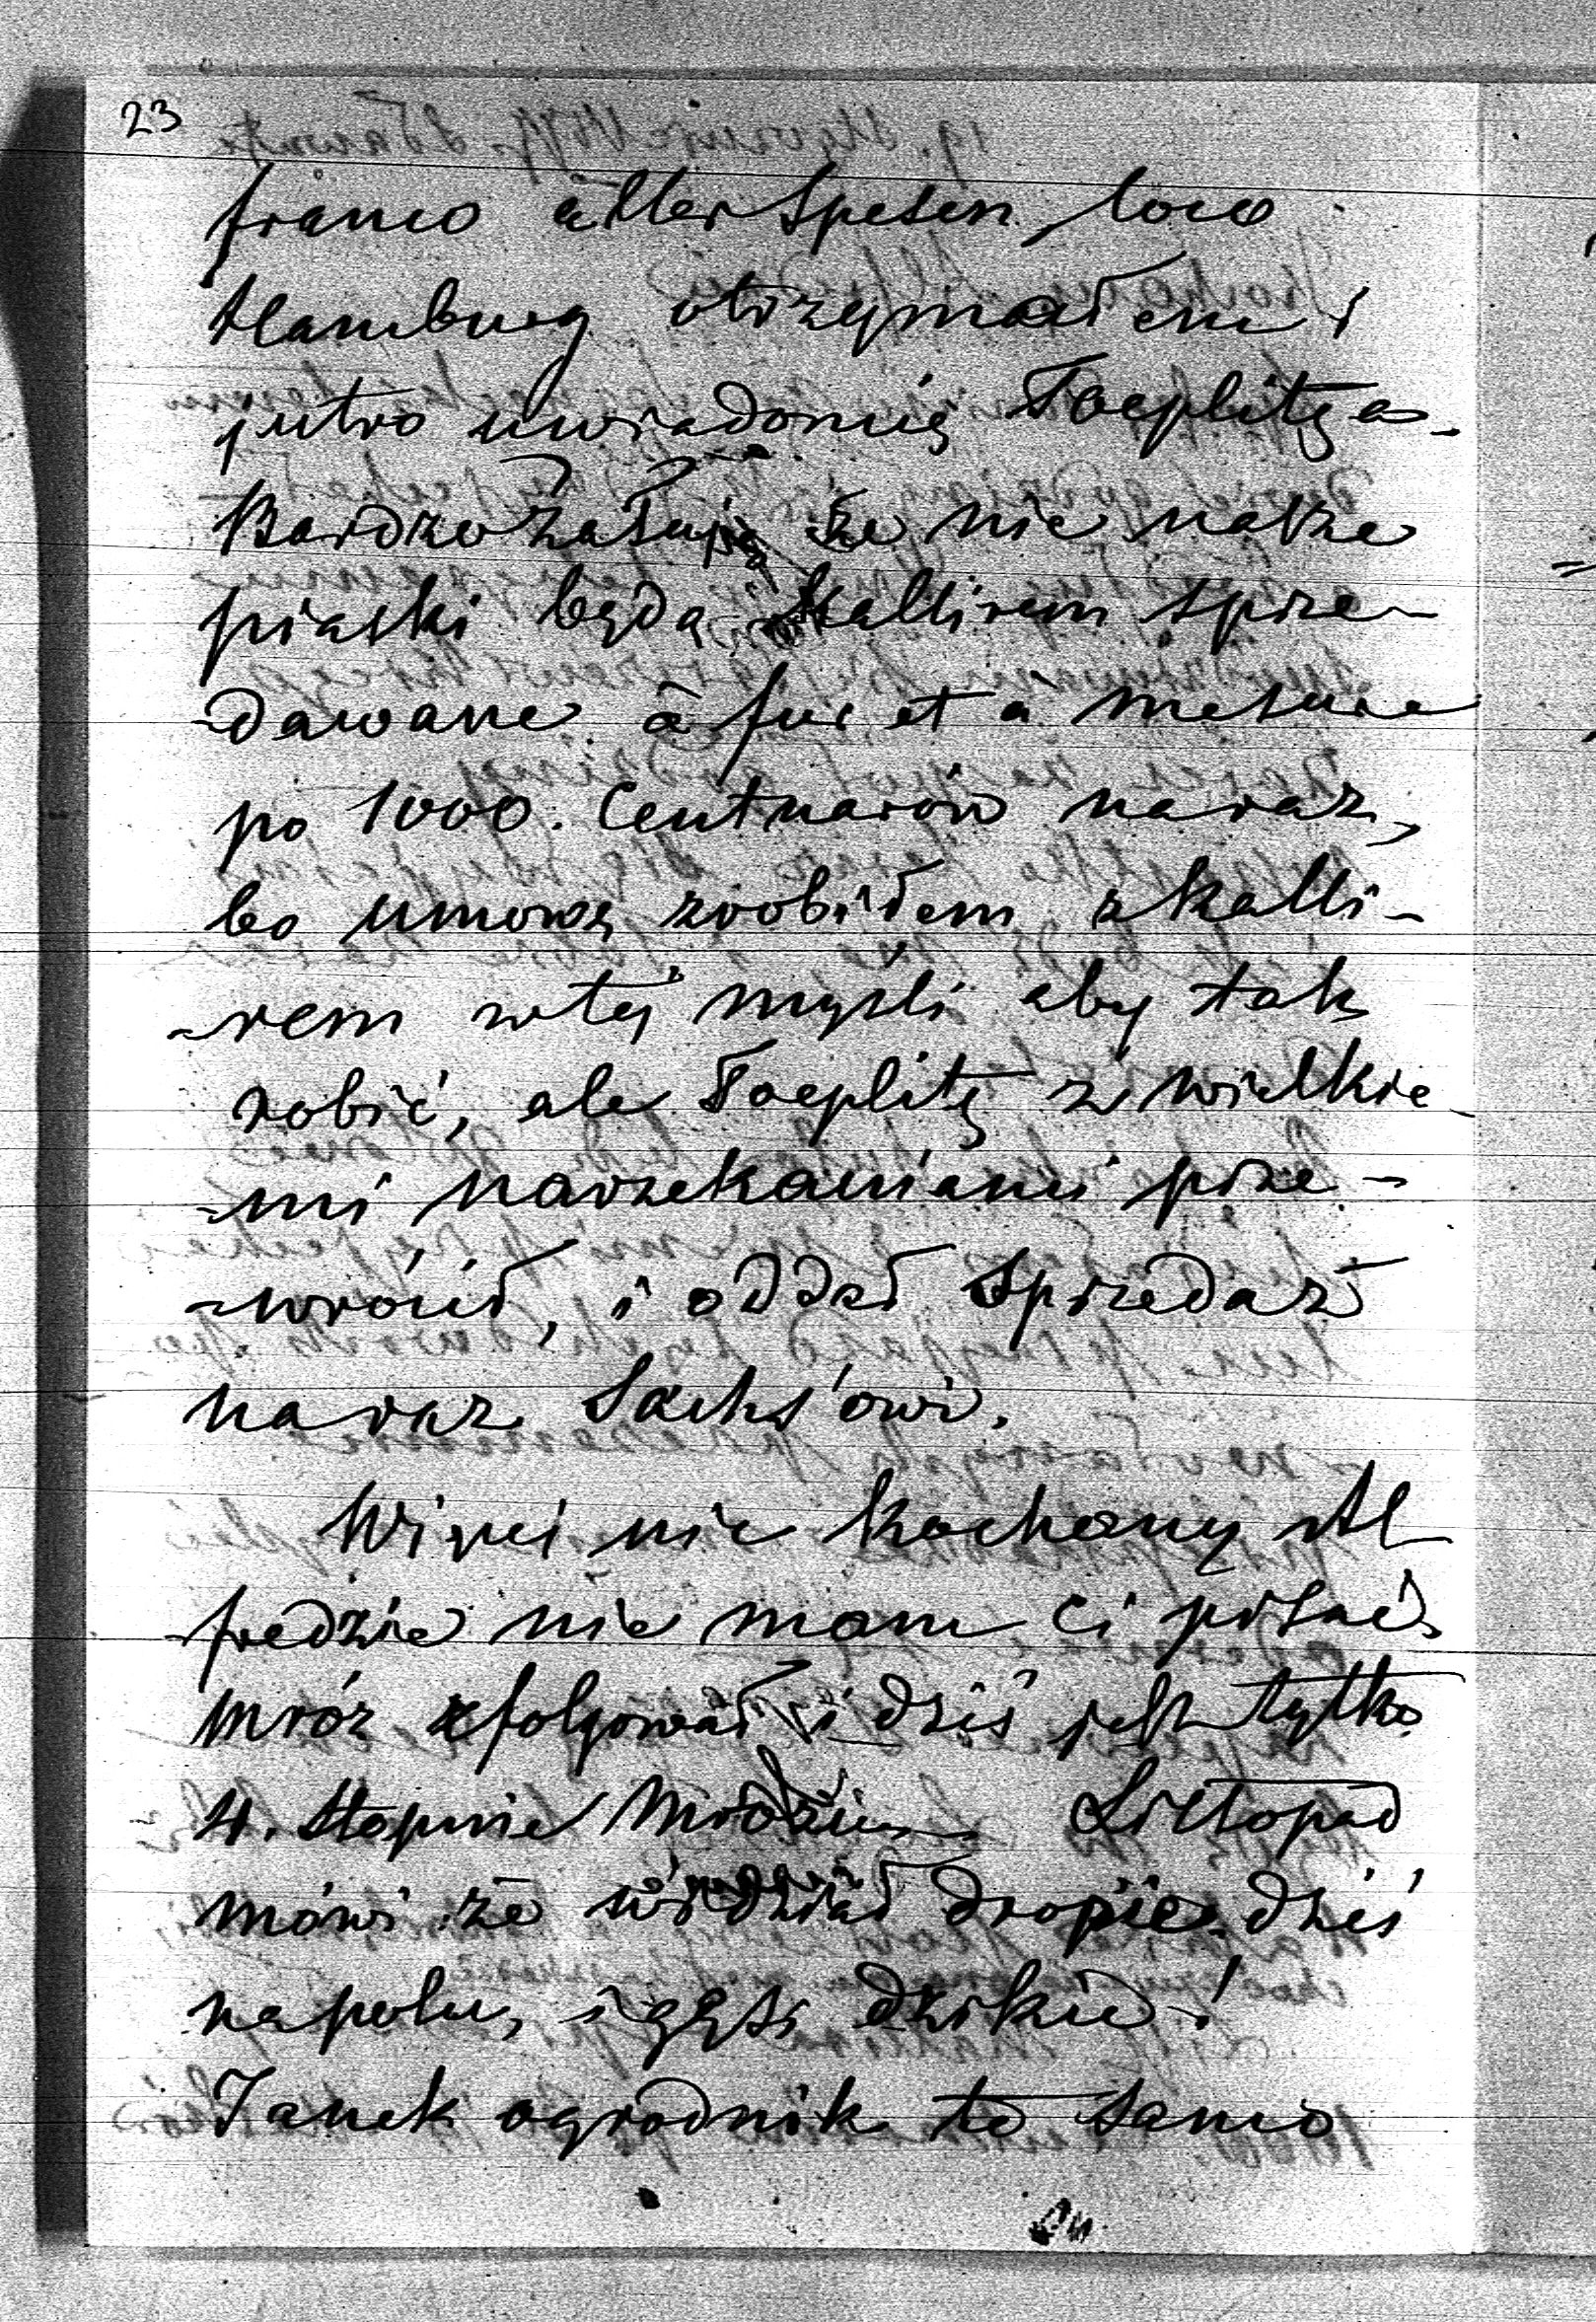 23
franco aller Spesen loco
Hamburg otrzymałem i
jutro uwiadomię Toeplitza.
Bardzo żałuję że nie nasze
piaski będą Kallirem sprze-
dawane à fur et a mesure
po 1000. Centnarów naraz,
bo umowę zrobiłem z Kalli-
-rem w tej myśli aby tak
robić, ale Toeplitz z wielkie-
-mi narzekaniami prze-
-wrócił, i oddał sprzedaż
naraz Sachs'owi.
Więcej nic kochany Al
fredzie nie mam ci pisać.
Mróz zfolgował i dziś jest tylko
4. stopnie mrozu. Listopad
mówi że widział dropie dziś
na polu, i gęsi dzikie!
Janek ogrodnik to samo